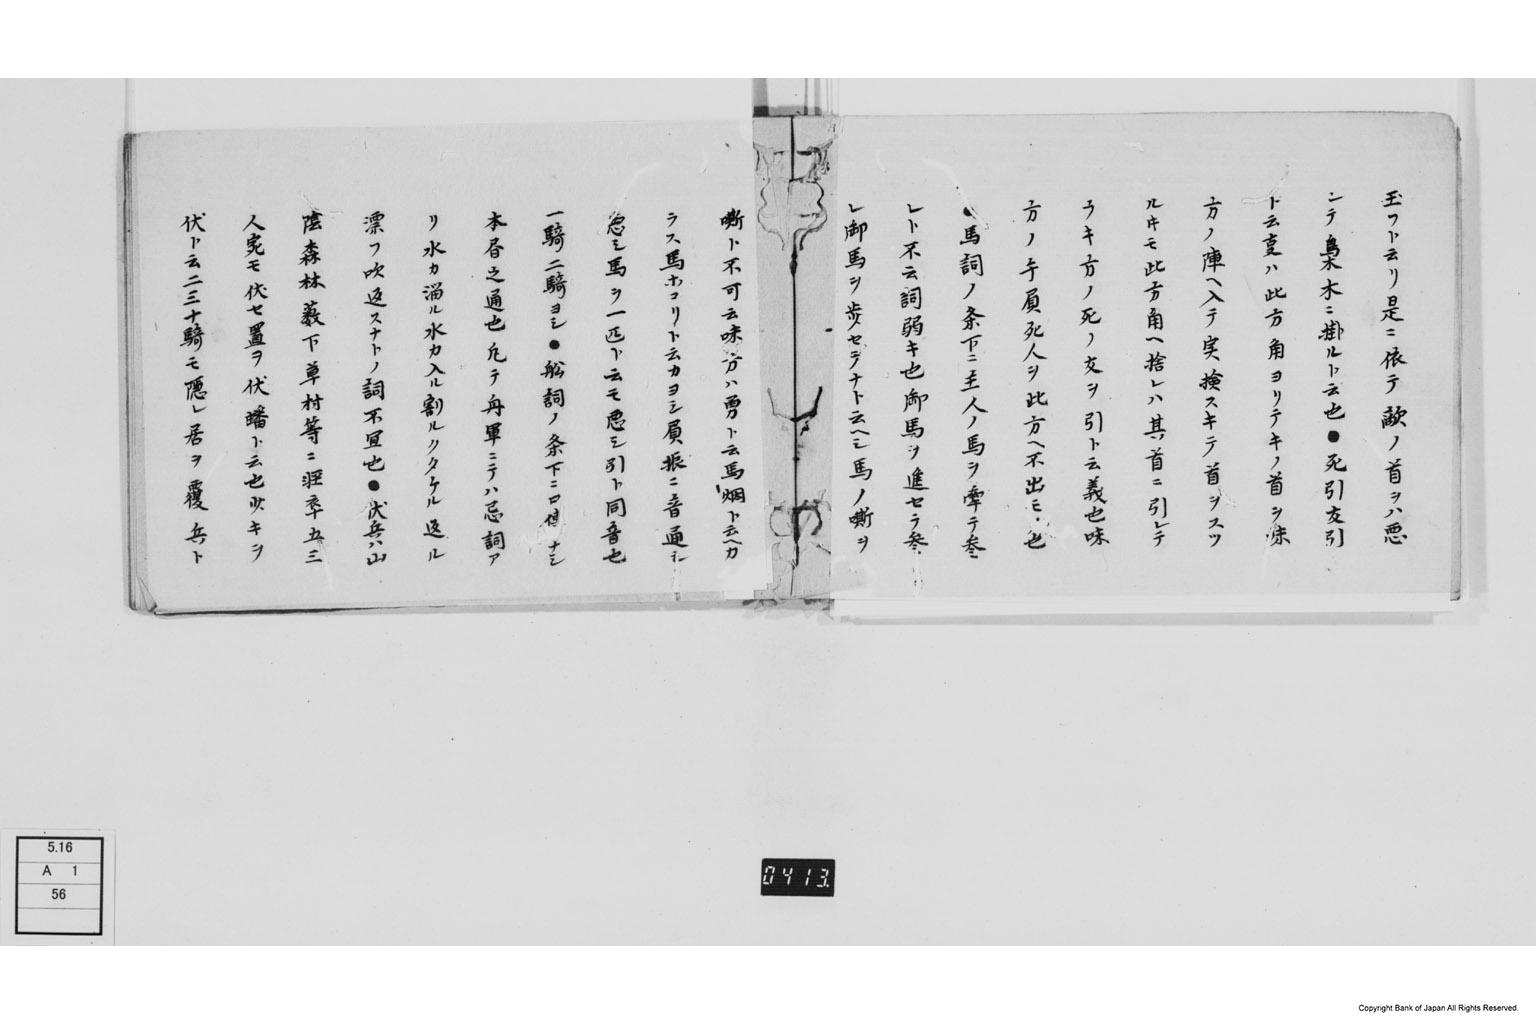 玉フト云リ是ニ依テ敵ノ首ヲハ悪
シテ梟木ニ掛ルト云也●死引友引
ト云支ハ此方角ヨリテキノ首ヲ味
方ノ陣ヘ入テ実検スキテ首ヲスツ
ルキモ此方角ヘ捨レハ其首ニ引レテ
テキ方ノ死ノ友ヲ引ト云義也味
方ノ手負死人ヲ此方ヘ不出モ也
●馬詞ノ条下ニ主人ノ馬ヲ牽テ参
レト不云詞弱キ也御馬ヲ進セテ参
レ御馬ヲ歩セテナト云ヘシ馬ノ嘶ヲ
嘶ト不可云味方ハ勇ト云馬烟ト云ヘカ
ラス馬ホコリト云カヨシ負振ニ音通シ
忌シ馬ヲ一匹ト云モ悪シ引ト同音也
一騎二騎ヨシ●舩詞ノ条下ニ口傳ナシ
本居之通也凡テ舟軍ニテハ忌詞ア
リ水カ溜ル水カ入ル割ルクタケル返ル
漂フ吹返スナトノ詞不宜也●伏兵ハ山
陰森林薮下草村等ニ 卒五三
人宛モ伏セ置ヲ伏蟠ト云也少キヲ
伏ト云二三十騎モ隠レ居ヲ覆兵ト
5.16
A 1
56
0413
Copyright Bank of Japan All Rights Reserved.